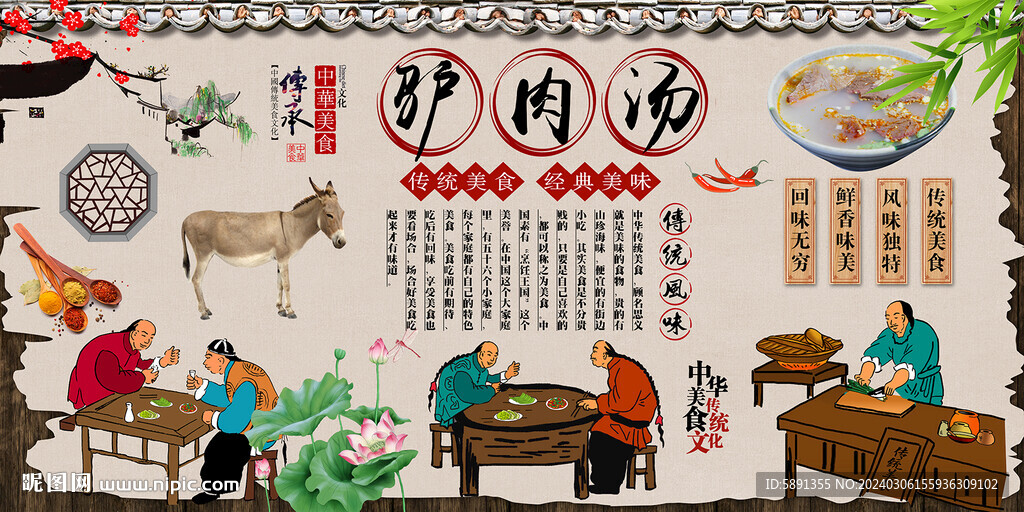 驴肉汤
传统美食 经典美味
中華美食
文化
傳承
【中國傳統美食文化】
中華美食
傳統風味
中华传统美食，顾名思义
就是美味的食物，贵的有
山珍海味，便宜的有街边
小吃，其实美食是不分贵
贱的，只要是自己喜欢的
，都可以称之为美食，中
国素有“烹饪王国”这个
美誉，在中国这个大家庭
里，有五十六个小家庭，
每个家庭都有自己的特色
美食，美食吃前有期待、
吃后有回味，享受美食也
要看场合，场合好美食吃
起来才有味道
传统美食
风味独特
鲜香味美
回味无穷
中华美食传统文化
传统美
昵图网 www.nipic.com
ID:5891355 NO:20240306155936309102